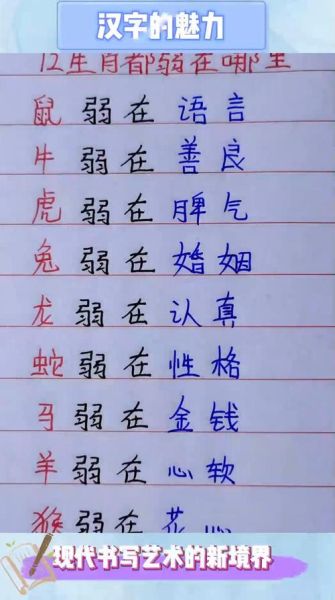 汉字的魅力
12生肖都弱在哪里
鼠 弱在 语言
牛 弱在 善良
虎 弱在 脾气
兔 弱在 婚姻
龙 弱在 认真
蛇 弱在 性格
马 弱在 金钱
羊 弱在 心软
猴 弱在 花心
现代书写艺术的新境界